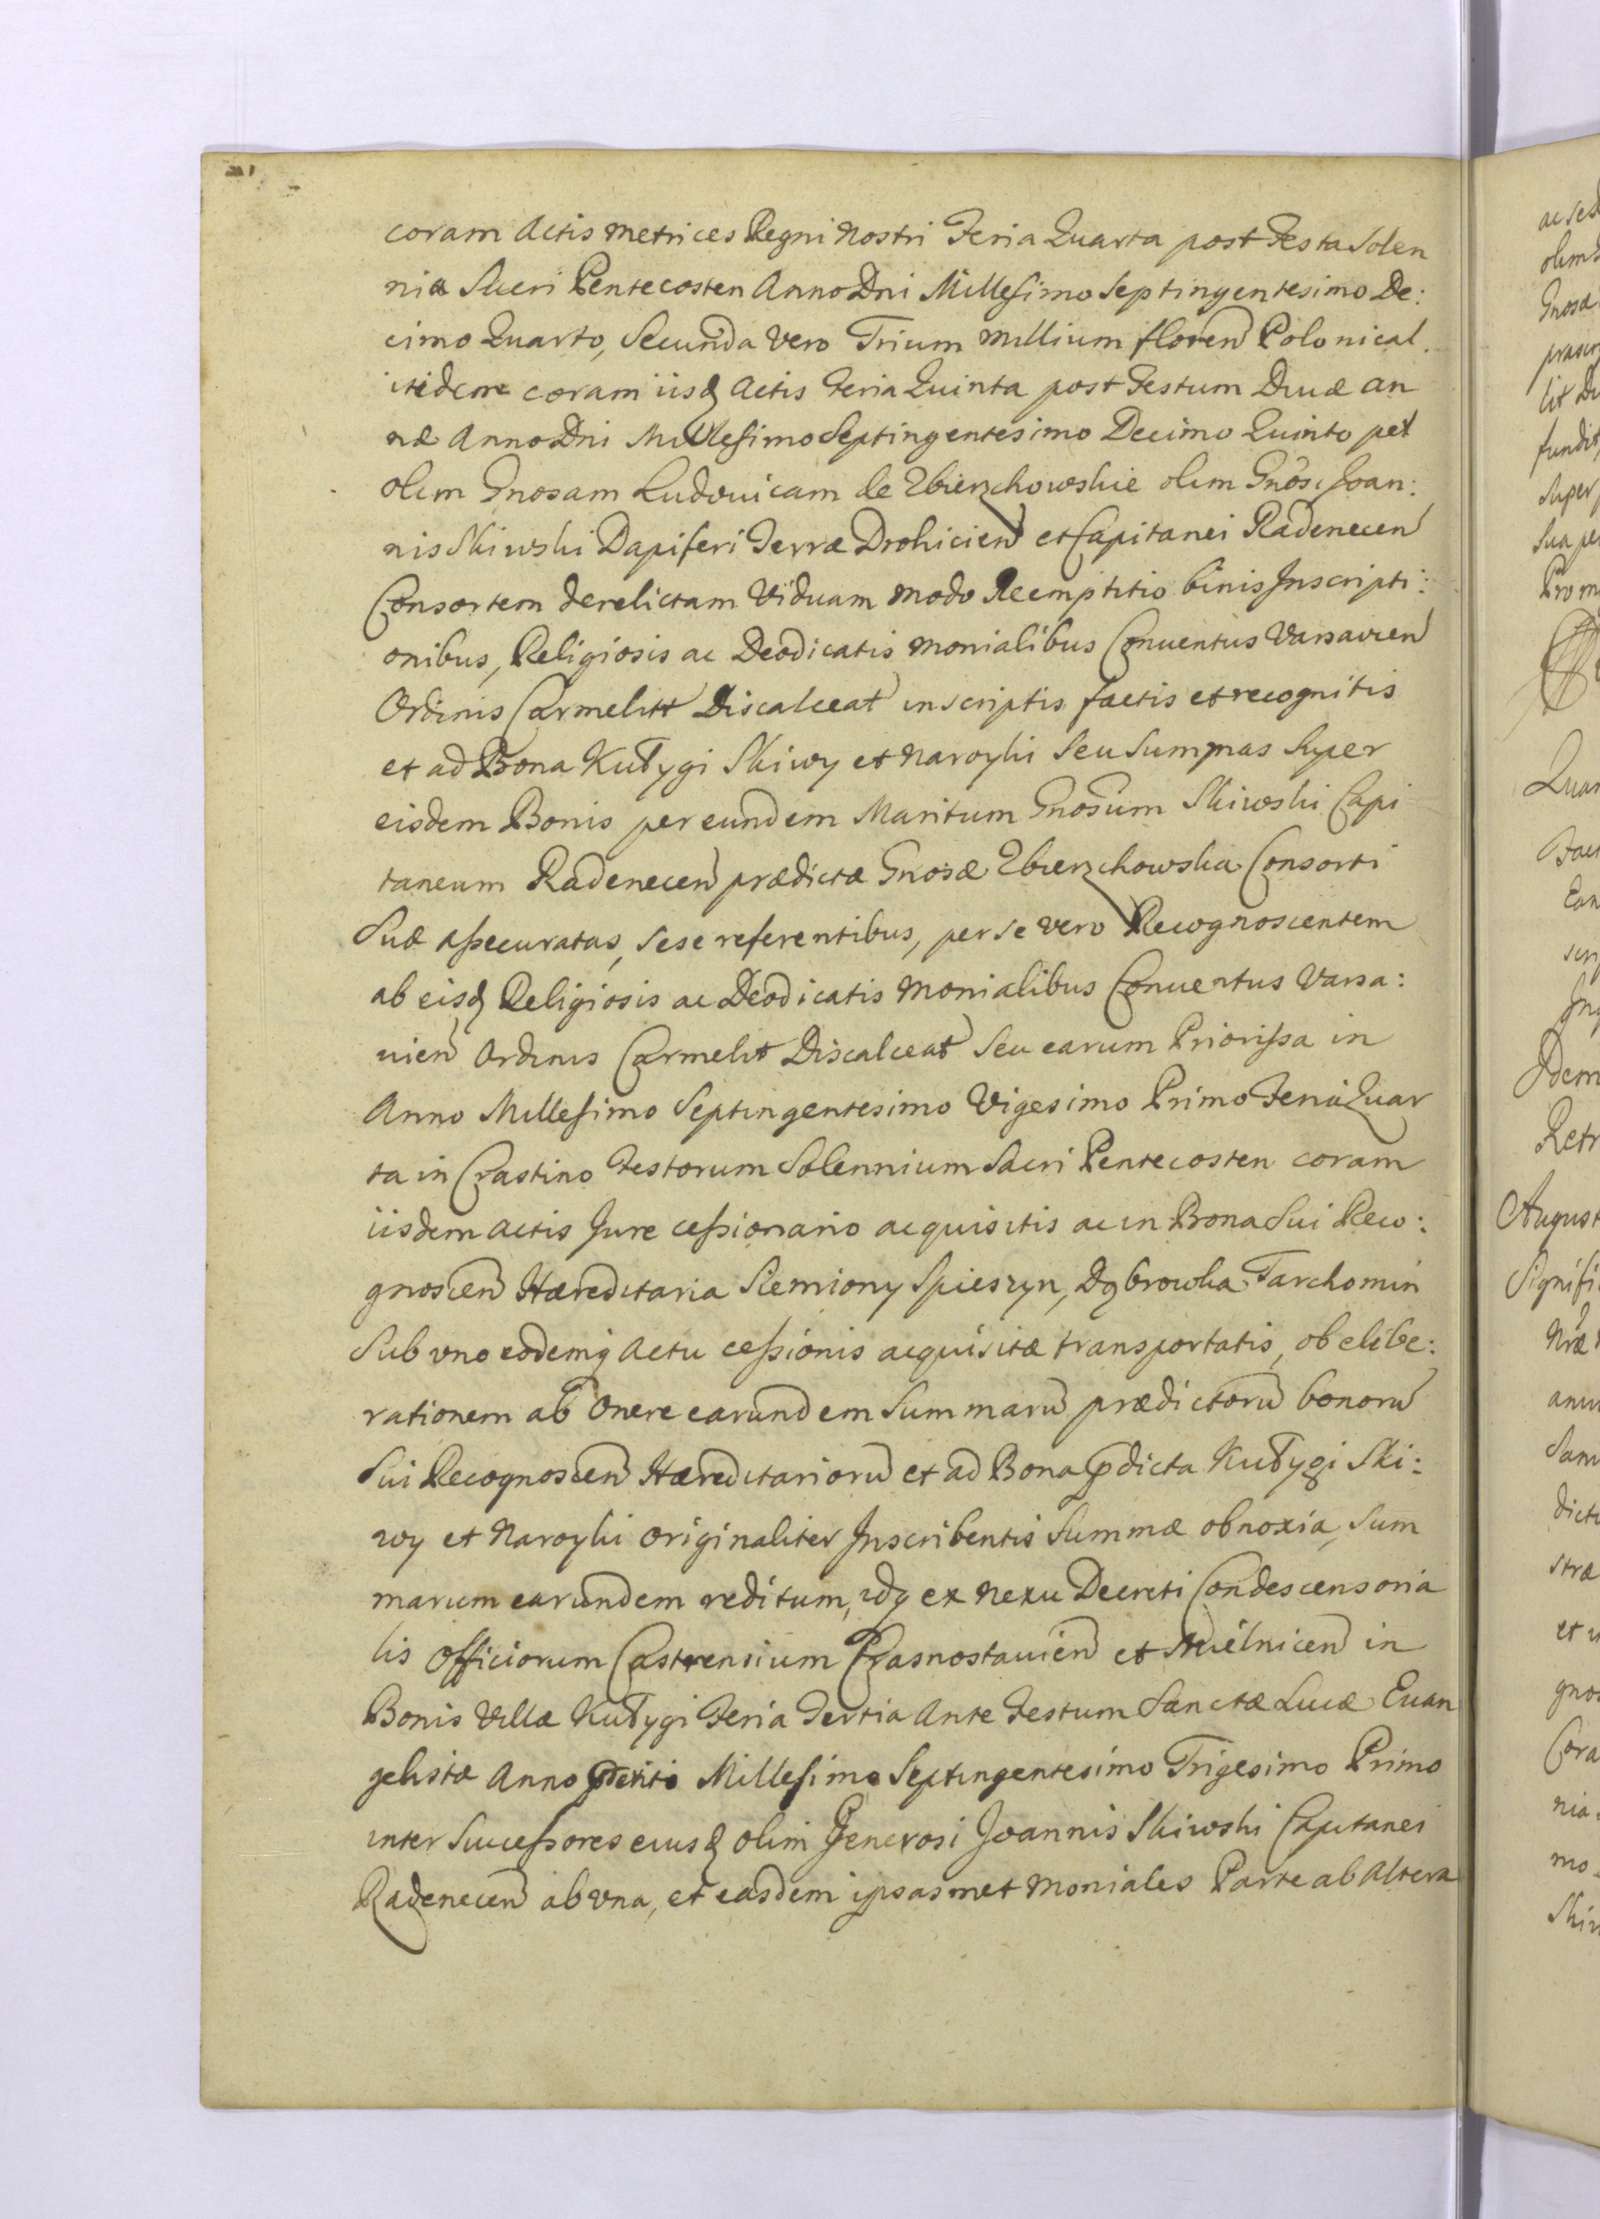 coram Actis Metrices Regni Nostri Feria Quarta post Festa Solen
nia Sacri Pentecosten Anno Dni Millesimo Septingentesimo De:
cimo Quarto, Secunda vero Trium Millium floren Polonical.
itidem coram iisq Actis Feria Quinta post Festum Divæ An
næ Anno Dni Millesimo Septingentesimo Decimo Quinto per
olim Gnosam Ludovicam de Zbierzchowskie olim Gnosi Joan:
nis Skiwski Dapiferi Terræ Drohicien et Capitanei Radenecen
Consortem derelictam Viduam modo Reemptitio binis Inscripti:
onibus, Religiosis ac Deodicatis Monialibus Conventus Varsavien
Ordinis Carmelitt Discalceat inscriptis factis et recognitis
et ad Bona Kułygi Skiwy et Naroyki seu Summas Super
eisdem Bonis per eundem Maritum Gnosum Skiwski Capi
taneum Radenecen prædictæ Gnosæ Zbierzchowska Consorti
Suæ assecuratas, sese referentibus, per se vero Recognoscentem
ab eisq Religiosis ac Deodicatis Monialibus Conventus Varsa:
vien Ordinis Carmelit Discalceat seu earum Priorissa in
Anno Millesimo Septingentesimo Vigesimo Primo Feria Quar
ta in Crastino Festorum Solennium Sacri Pentecosten coram
iisdem Actis Jure cessionario acquisitis ac in Bona Sui Reco:
gnoscen Hæreditaria Siemiony Spieszyn, Dąbrowka Tarchomin
Sub uno eodemq Actu cessionis acquisitæ transportatis, ob elibe:
rationem ab Onere earundem Summarū prædictorū bonorū
Sui Recognoscen Hæreditariorū et ad Bona pdicta Kułygi Ski:
wy et Naroyki originaliter Inscribentis Summæ obnoxia, Sum
marum earundem reditum, idq ex nexu Decreti Condescensoria
lis Officiorum Castrensium Crasnostavien et Mielnicen in
Bonis Villæ Kułygi Feria Tertia Ante Festum Sanctæ Lucæ Evan
gelistæ Anno Millesimo Septingentesimo Trigesimo Primo
inter Successores eiusq olim Generosi Joannis Skiwski Capitanei
Radenecen ab una, et easdem ipsasmet Moniales Parte ab Altera